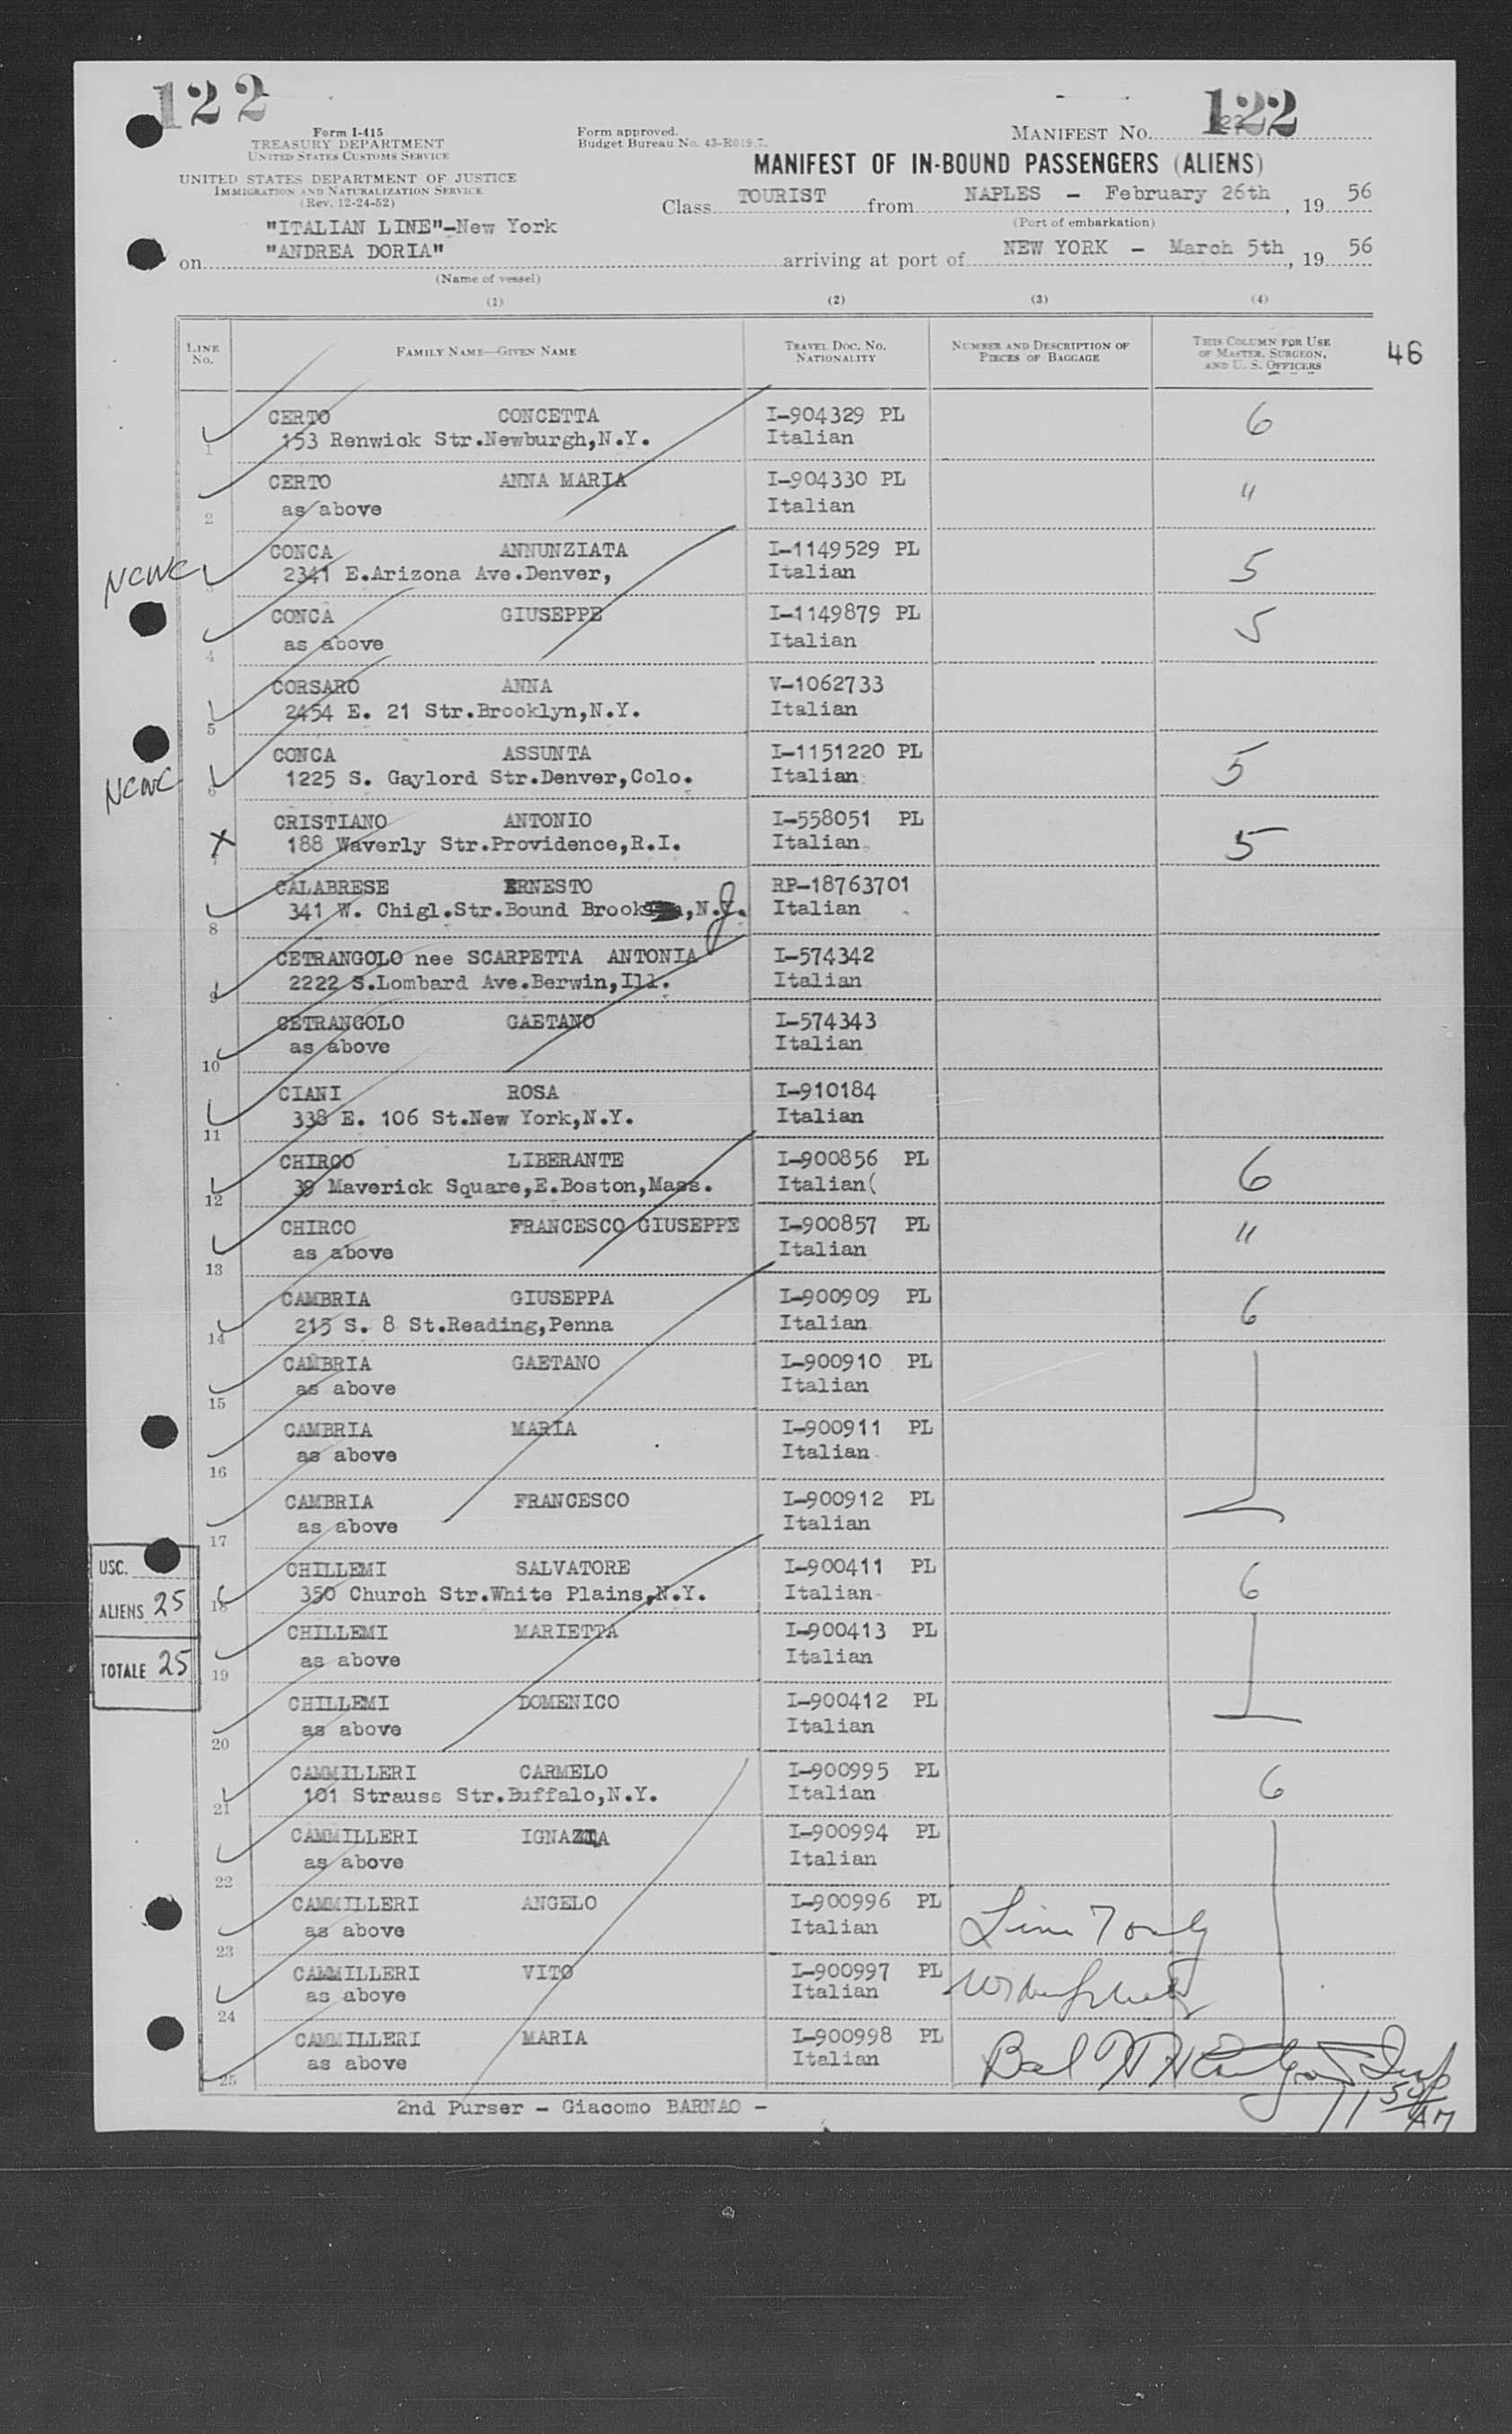 122
122
Form I-415
TREASURY DEPARTMENT
UNITED STATES CUSTOMS SERVICE
UNITED STATES DEPARTMENT OF JUSTICE
IMMIGRATION AND NATURALIZATION SERVICE
(Rev. 12-24-52)
Form approved.
Budget Bureau No. 43-R019.7.
MANIFEST NO.
MANIFEST OF IN-BOUND PASSENGERS (ALIENS)
Class TOURIST from NAPLES - February 26th, 19 56
(Port of embarkation)
"ITALIAN LINE"-New York
on "ANDREA DORIA" arriving at port of NEW YORK - March 5th, 19 56
(Name of vessel)
(1) (2) (3) (4)
LINE NO. FAMILY NAME—GIVEN NAME TRAVEL DOC. NO. NATIONALITY NUMBER AND DESCRIPTION OF PIECES OF BAGGAGE THIS COLUMN FOR USE OF MASTER, SURGEON, AND U. S. OFFICERS 46
1 CERTO CONCETTA I-904329 PL 6
153 Renwick Str.Newburgh,N.Y. Italian
2 CERTO ANNA MARIA I-904330 PL "
as above Italian
NCWC 3 CONCA ANNUNZIATA I-1149529 PL 5
2341 E.Arizona Ave.Denver, Italian
4 CONCA GIUSEPPE I-1149879 PL 5
as above Italian
5 CORSARO ANNA V-1062733
2454 E. 21 Str.Brooklyn,N.Y. Italian
NCWC 6 CONCA ASSUNTA I-1151220 PL 5
1225 S. Gaylord Str.Denver,Colo. Italian
X 7 CRISTIANO ANTONIO I-558051 PL 5
188 Waverly Str.Providence,R.I. Italian
8 CALABRESE ERNESTO RP-18763701
341 W. Chigl.Str.Bound Brook,N.J. Italian
9 CETRANGOLO nee SCARPETTA ANTONIA I-574342
2222 S.Lombard Ave.Berwin,Ill. Italian
10 CETRANGOLO GAETANO I-574343
as above Italian
11 CIANI ROSA I-910184
338 E. 106 St.New York,N.Y. Italian
12 CHIRCO LIBERANTE I-900856 PL 6
39 Maverick Square,E.Boston,Mass. Italian(
13 CHIRCO FRANCESCO GIUSEPPE I-900857 PL "
as above Italian
14 CAMBRIA GIUSEPPA I-900909 PL 6
215 S. 8 St.Reading,Penna Italian
15 CAMBRIA GAETANO I-900910 PL
as above Italian
16 CAMBRIA MARIA I-900911 PL
as above Italian
17 CAMBRIA FRANCESCO I-900912 PL
as above Italian
18 CHILLEMI SALVATORE I-900411 PL 6
350 Church Str.White Plains,N.Y. Italian
19 CHILLEMI MARIETTA I-900413 PL
as above Italian
20 CHILLEMI DOMENICO I-900412 PL
as above Italian
21 CAMMILLERI CARMELO I-900995 PL 6
101 Strauss Str.Buffalo,N.Y. Italian
22 CAMMILLERI IGNAZIA I-900994 PL
as above Italian
23 CAMMILLERI ANGELO I-900996 PL
as above Italian Line 7 only
24 CAMMILLERI VITO I-900997 PL
as above Italian
25 CAMMILLERI MARIA I-900998 PL
as above Italian Bal
USC.
ALIENS 25
TOTALE 25
2nd Purser - Giacomo BARNAO -